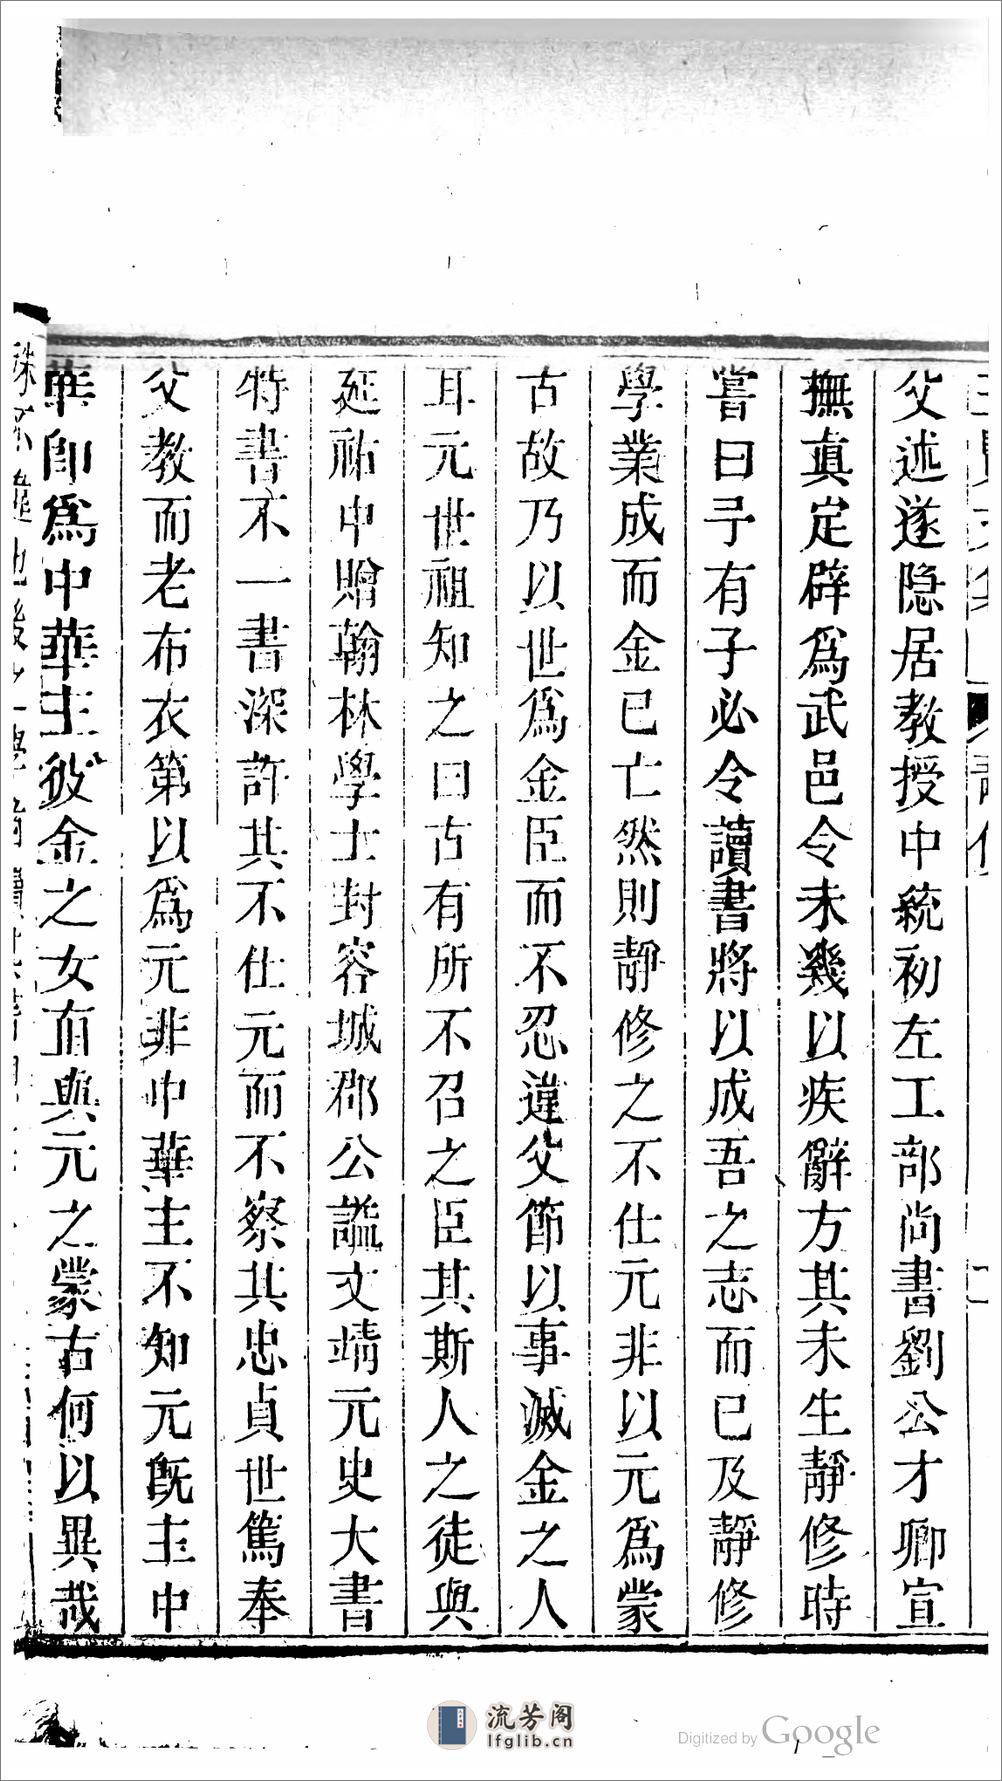 父述遂隐居教授中統初左工部尚書劉公才卿宣
撫真定辟為武邑令未幾以疾辭方其未生靜修時
嘗曰予有子必令讀書將以成吾之志而已及靜修
學業成而金已亡然則靜修之不仕元非以元為蒙
古故乃以世為金臣而不忍違父節以事滅金之人
耳元世祖知之曰古有所不召之臣其斯人之徒與
延祐中贈翰林學士封容城郡公謚文靖元史大書
特書不一書深許其不仕元而不察其忠貞世篤奉
父教而老布衣第以為元非中華主不知元既主中
華卽為中華主彼金之女直與元之蒙古何以異哉
流芳阁
lfglib.cn
Digitized by Google